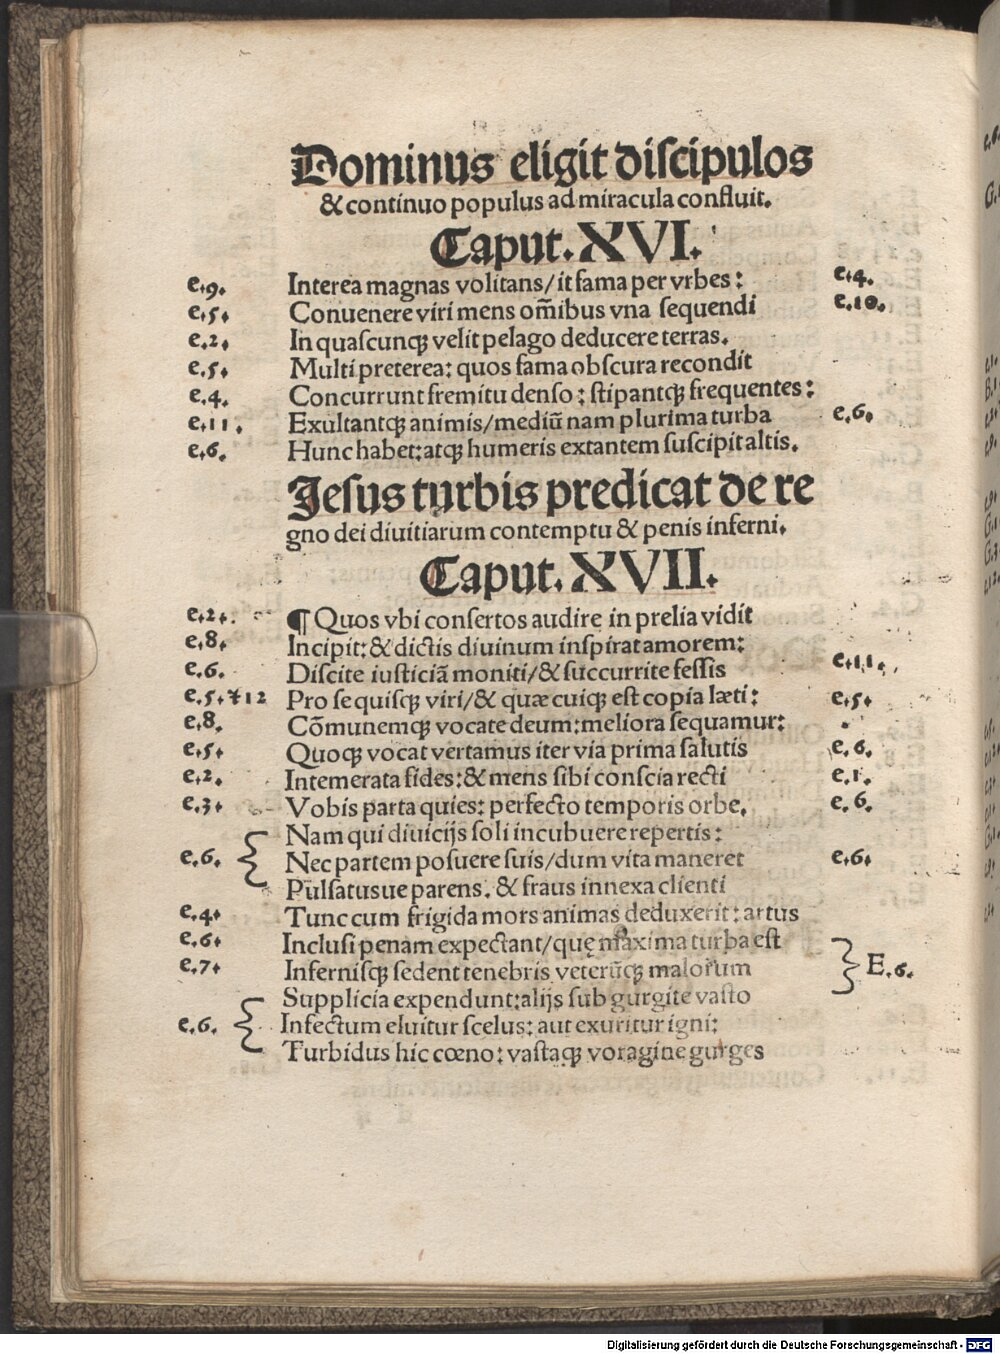 Dominus eligit diſcipulos
& continuo populus ad miracula confluit.
Caput. XVI.
e.9. Interea magnas volitans/it fama per vrbes: e.4.
e.5. Conuenere viri mens om̄ibus vna ſequendi e.10.
e.2. In quaſcunqꝫ velit pelago deducere terras.
e.5. Multi preterea: quos fama obſcura recondit
e.4. Concurrunt fremitu denſo: ſtipantqꝫ frequentes:
e.11. Exultantqꝫ animis/mediū nam plurima turba e.6.
e.6. Hunc habet: atqꝫ humeris extantem ſuſcipit altis.
Jeſus turbis predicat de re
gno dei diuitiarum contemptu & penis inferni.
Caput. XVII.
e.2. ¶ Quos vbi conſertos audire in prelia vidit
e.8. Incipit: & dictis diuinum inſpirat amorem:
e.6. Diſcite iuſticiā moniti/& ſuccurrite feſſis e.11.
e.5. ⁊ 12 Pro ſe quiſqꝫ viri/& quæ cuiqꝫ eſt copia læti: e.5.
e.8. Cōmunemqꝫ vocate deum: meliora ſequamur:
e.5. Quoqꝫ vocat vertamus iter via prima ſalutis e.6.
e.2. Intemerata fides: & mens ſibi conſcia recti e.1.
e.3. Vobis parta quies: perfecto temporis orbe. e.6.
Nam qui diuicijs ſoli incubuere repertis:
e.6. Nec partem poſuere ſuis/dum vita maneret e.6.
Pulſatusue parens. & fraus innexa clienti
e.4. Tunc cum frigida mors animas deduxerit: artus
e.6. Incluſi penam expectant/quę maxima turba eſt
e.7. Infernisqꝫ ſedent tenebris veterūqꝫ malorum E.6.
Supplicia expendunt: alijs ſub gurgite vaſto
e.6. Infectum eluitur ſcelus: aut exuritur igni:
Turbidus hic cœno: vaſtaqꝫ voragine gurges
Digitalisierung gefördert durch die Deutsche Forschungsgemeinschaft - DFG